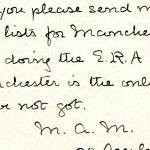 you please send m
lists for Manche
doing the E.R.A
nchester is the onl
not got.
M. a. M.